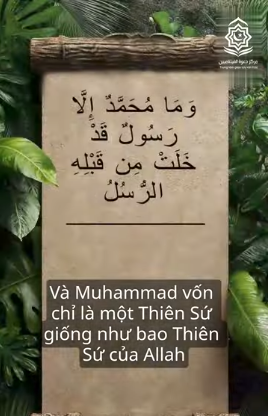 وَمَا مُحَمَّدٌ إِلَّا
رَسُولٌ قَدْ
خَلَتْ مِن قَبْلِهِ
الرُّسُلُ
Và Muhammad vốn
chỉ là một Thiên Sứ
giống như bao Thiên
Sứ của Allah